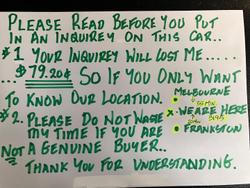 PLEASE READ BEFORE YOU PUT
IN AN INQUIREY ON THIS CAR..
#1 YOUR INQUIREY WILL COST ME......
... $79.20¢ ... SO IF YOU ONLY WANT
TO KNOW OUR LOCATION.
MELBOURNE
#2. PLEASE DO NOT WASTE
WEARE HERE
MY TIME IF YOU ARE
FRANKSTON
NOT A GENUINE BUYER..
THANK YOU FOR UNDERSTANDING.